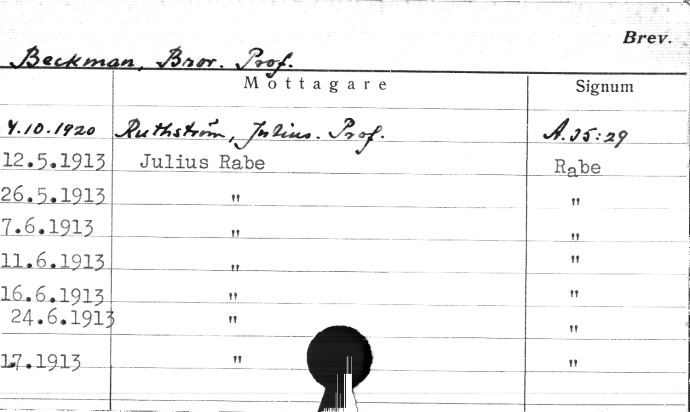 Brev.
Beckman, Bror. Prof.
Mottagare Signum
4.10.1920 Ruthström, Julius. Prof. A.35:29
12.5.1913 Julius Rabe Rabe
26.5.1913 " "
7.6.1913 " "
11.6.1913 " "
16.6.1913 " "
24.6.1913 " "
17.1913 " "